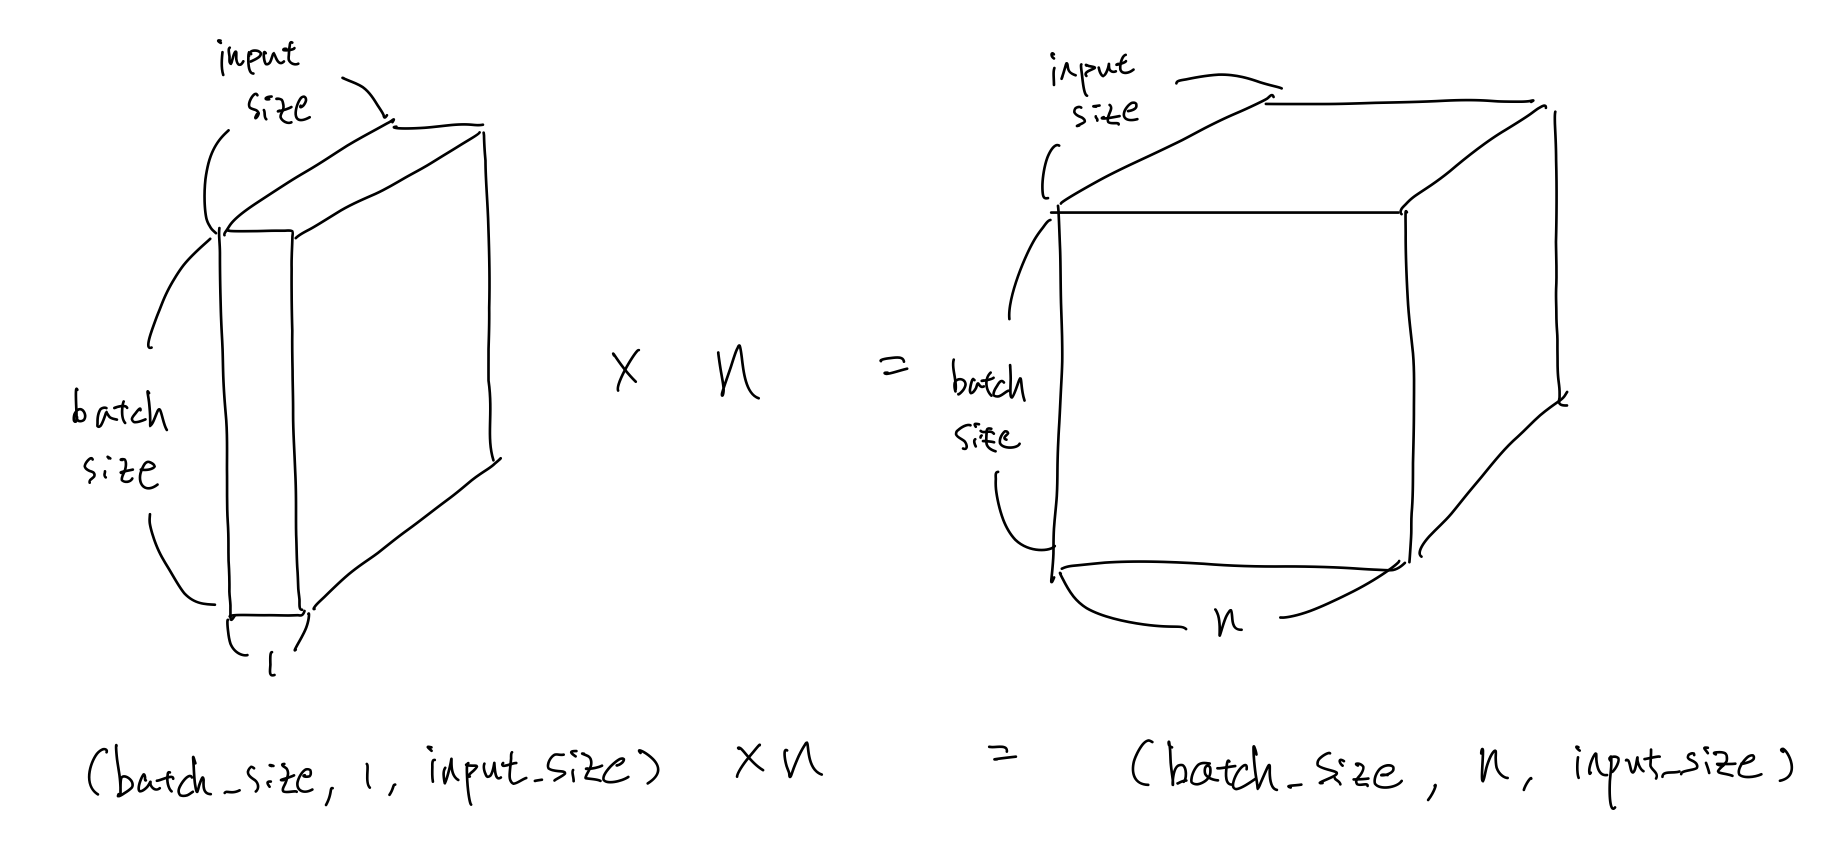 input
size
batch
size
1
× n =
input
size
batch
size
n
(batch_size, 1, input_size) × n = (batch_size, n, input_size)